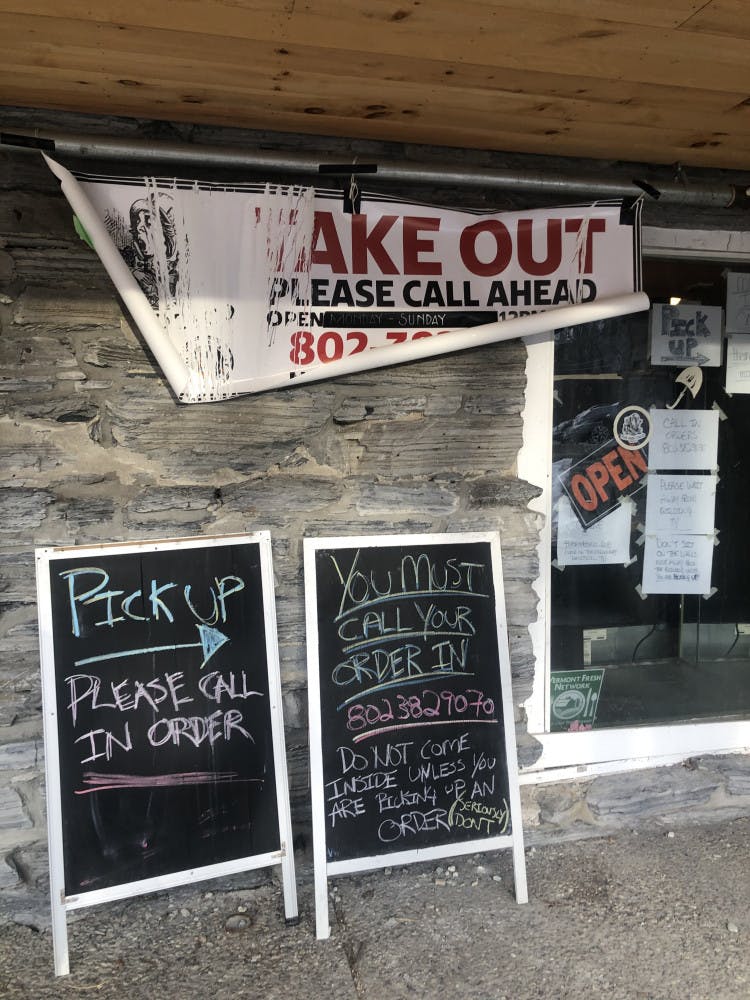 TAKE OUT
PLEASE CALL AHEAD
OPEN MONDAY - SUNDAY 12PM
802-
PICK UP
PLEASE CALL
IN ORDER
YOU MUST
CALL YOUR
ORDER IN
8023829070
DO NOT COME
INSIDE UNLESS YOU
ARE PICKING UP AN
ORDER (SERIOUSLY
DON'T)
PICK
UP
CALL IN
ORDERS
OPEN
PLEASE WAIT
AWAY FROM
BUILDING
DON'T SIT
ON THE WALLS
VERMONT FRESH
NETWORK